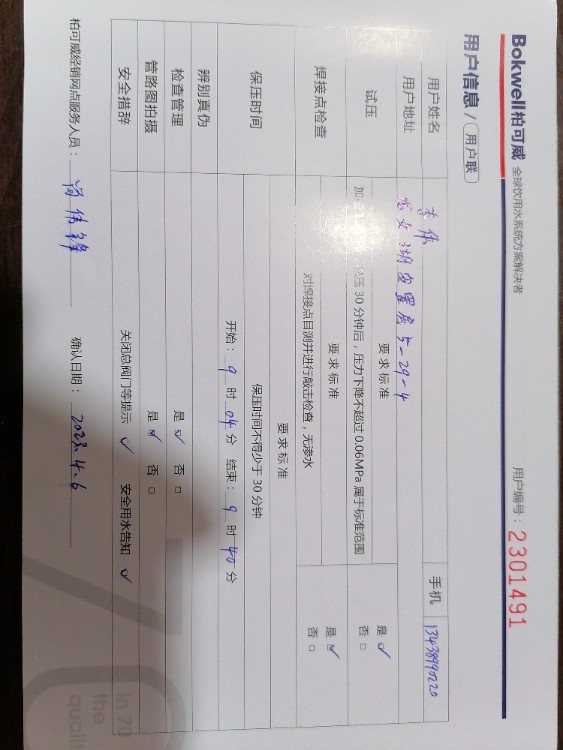 Bokwell柏可威 全球饮用水系统方案解决者 用户编号：2301491
用户信息/用户联
用户姓名 李伟 手机 13438990220
用户地址 龙女湖安置房5-29-4
试压 要求标准
压30分钟后，压力下降不超过0.06MPa属于标准范围 是☑
否□
焊接点检查 要求标准
对焊接点目测并进行敲击检查，无渗水 是☑
否□
保压时间 要求标准
保压时间不得少于30分钟
开始：9时04分 结束：9时40分
辨别真伪
检查管理 是☑ 否□
管路图拍摄 是☑ 否□
安全措辞 关闭总阀门等提示 ✓ 安全用水告知 ✓
柏可威经销网点服务人员： 伟锋 确认日期：2023.4.6
In 70
the
qualit